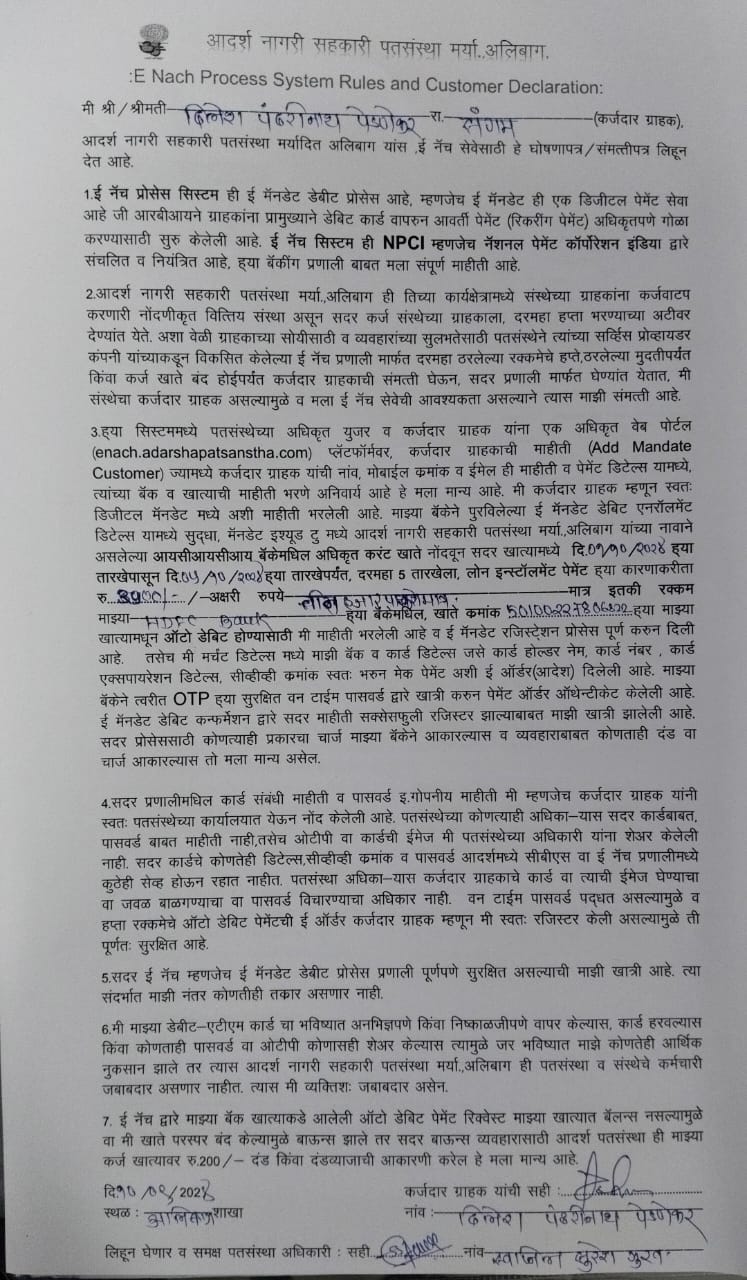 आदर्श नागरी सहकारी पतसंस्था मर्या.,अलिबाग.
:E Nach Process System Rules and Customer Declaration:
मी श्री/श्रीमती दिलेश पंढरीनाथ पेडणेकर रा. संगम (कर्जदार ग्राहक),
आदर्श नागरी सहकारी पतसंस्था मर्यादित अलिबाग यांस ,ई नॅच सेवेसाठी हे घोषणापत्र/संमत्तीपत्र लिहून
देत आहे.
1.ई नॅंच प्रोसेस सिस्टम ही ई मॅनडेट डेबीट प्रोसेस आहे, म्हणजेच ई मॅनडेट ही एक डिजिटल पेमेंट सेवा
आहे जी आरबीआयने ग्राहकांना प्रामुख्याने डेबिट कार्ड वापरुन आवर्ती पेमेंट (रिकरींग पेमेंट) अधिकृतपणे गोळा
करण्यासाठी सुरु केलेली आहे. ई नॅंच सिस्टम ही NPCI म्हणजेच नॅशनल पेमेंट कॉर्पोरेशन इंडिया द्वारे
संचलित व नियंत्रित आहे, ह्या बॅकींग प्रणाली बाबत मला संपूर्ण माहीती आहे.
2.आदर्श नागरी सहकारी पतसंस्था मर्या.,अलिबाग ही तिच्या कार्यक्षेत्रामध्ये संस्थेच्या ग्राहकांना कर्जवाटप
करणारी नोंदणीकृत वित्तिय संस्था असून सदर कर्ज संस्थेच्या ग्राहकाला, दरमहा हप्ता भरण्याच्या अटीवर
देण्यांत येते. अशा वेळी ग्राहकाच्या सोयीसाठी व व्यवहारांच्या सुलभतेसाठी पतसंस्थेने त्यांच्या सर्व्हिस प्रोव्हायडर
कंपनी यांच्याकडून विकसित केलेल्या ई नॅच प्रणाली मार्फत दरमहा ठरलेल्या रक्कमेचे हप्ते,ठरलेल्या मुदतीपर्यंत
किंवा कर्ज खाते बंद होईपर्यंत कर्जदार ग्राहकाची संमत्ती घेऊन, सदर प्रणाली मार्फत घेण्यांत येतात, मी
संस्थेचा कर्जदार ग्राहक असल्यामुळे व मला ई नॅच सेवेची आवश्यकता असल्याने त्यास माझी संमत्ती आहे.
3.ह्या सिस्टममध्ये पतसंस्थेच्या अधिकृत युजर व कर्जदार ग्राहक यांना एक अधिकृत वेब पोर्टल
(enach.adarshapatsanstha.com) प्लॅटफॉर्मवर, कर्जदार ग्राहकाची माहीती (Add Mandate
Customer) ज्यामध्ये कर्जदार ग्राहक यांची नांव, मोबाईल क्रमांक व ईमेल ही माहीती व पेमेंट डिटेल्स यामध्ये,
त्यांच्या बॅंक व खात्याची माहीती भरणे अनिवार्य आहे हे मला मान्य आहे. मी कर्जदार ग्राहक म्हणून स्वतः
डिजीटल मॅनडेट मध्ये अशी माहीती भरलेली आहे. माझ्या बॅकेने पुरविलेल्या ई मॅनडेट डेबिट एनरॉलमेंट
डिटेल्स यामध्ये सुद्धा, मॅनडेट इश्यूड टु मध्ये आदर्श नागरी सहकारी पतसंस्था मर्या.,अलिबाग यांच्या नावाने
असलेल्या आयसीआयसीआय बॅंकेमधिल अधिकृत करंट खाते नोंदवून सदर खात्यामध्ये दि. ह्या
तारखेपासून दि. ह्या तारखेपर्यंत, दरमहा 5 तारखेला, लोन इन्स्टॉलमेंट पेमेंट ह्या कारणाकरीता
रु. /-अक्षरी रुपये मात्र इतकी रक्कम
माझ्या HDFC Bank ह्या बॅंकेमधिल, खाते कमांक ह्या माझ्या
खात्यामधून ऑटो डेबिट होण्यासाठी मी माहीती भरलेली आहे व ई मॅनडेट रजिस्ट्रेशन प्रोसेस पूर्ण करुन दिली
आहे. तसेच मी मर्चंट डिटेल्स मध्ये माझी बॅंक व कार्ड डिटेल्स जसे कार्ड होल्डर नेम, कार्ड नंबर , कार्ड
एक्सपायरेशन डिटेल्स, सीव्हीव्ही कमांक स्वतः भरुन मेक पेमेंट अशी ई ऑर्डर(आदेश) दिलेली आहे. माझ्या
बॅकेने त्वरीत OTP ह्या सुरक्षित वन टाईम पासवर्ड द्वारे खात्री करुन पेमेंट ऑर्डर ऑथेन्टीकेट केलेली आहे.
ई मॅनडेट डेबिट कन्फर्मेशन द्वारे सदर माहीती सक्सेसफुली रजिस्टर झाल्याबाबत माझी खात्री झालेली आहे.
सदर प्रोसेससाठी कोणत्याही प्रकारचा चार्ज माझ्या बॅकेने आकारल्यास व व्यवहाराबाबत कोणताही दंड वा
चार्ज आकारल्यास तो मला मान्य असेल.
4.सदर प्रणालीमधिल कार्ड संबंधी माहीती व पासवर्ड इ.गोपनीय माहीती मी म्हणजेच कर्जदार ग्राहक यांनी
स्वतः पतसंस्थेच्या कार्यालयात येऊन नोंद केलेली आहे. पतसंस्थेच्या कोणत्याही अधिका–यास सदर कार्डबाबत,
पासवर्ड बाबत माहीती नाही,तसेच ओटीपी वा कार्डची ईमेज मी पतसंस्थेच्या अधिकारी यांना शेअर केलेली
नाही. सदर कार्डचे कोणतेही डिटेल्स,सीव्हीव्ही कमांक व पासवर्ड आदर्शमध्ये सीबीएस वा ई नॅच प्रणालीमध्ये
कुठेही सेव्ह होऊन रहात नाहीत. पतसंस्था अधिका–यास कर्जदार ग्राहकाचे कार्ड वा त्याची ईमेज घेण्याचा
वा जवळ बाळगण्याचा वा पासवर्ड विचारण्याचा अधिकार नाही. वन टाईम पासवर्ड पद्धत असल्यामुळे व
हप्ता रक्कमेचे ऑटो डेबिट पेमेंटची ई ऑर्डर कर्जदार ग्राहक म्हणून मी स्वतः रजिस्टर केली असल्यामुळे ती
पूर्णतः सुरक्षित आहे.
5.सदर ई नॅच म्हणजेच ई मॅनडेट डेबीट प्रोसेस प्रणाली पूर्णपणे सुरक्षित असल्याची माझी खात्री आहे. त्या
संदर्भात माझी नंतर कोणतीही तकार असणार नाही.
6.मी माझ्या डेबीट–एटीएम कार्ड चा भविष्यात अनभिज्ञपणे किंवा निष्काळजीपणे वापर केल्यास, कार्ड हरवल्यास
किंवा कोणताही पासवर्ड वा ओटीपी कोणासही शेअर केल्यास त्यामुळे जर भविष्यात माझे कोणतेही आर्थिक
नुकसान झाले तर त्यास आदर्श नागरी सहकारी पतसंस्था मर्या.,अलिबाग ही पतसंस्था व संस्थेचे कर्मचारी
जबाबदार असणार नाहीत. त्यास मी व्यक्तिशः जबाबदार असेन.
7. ई नॅच द्वारे माझ्या बॅंक खात्याकडे आलेली ऑटो डेबिट पेमेंट रिक्वेस्ट माझ्या खात्यात बॅलन्स नसल्यामुळे
वा मी खाते परस्पर बंद केल्यामुळे बाऊन्स झाले तर सदर बाऊन्स व्यवहारासाठी आदर्श पतसंस्था ही माझ्या
कर्ज खात्यावर रु.200/– दंड किंवा दंडव्याजाची आकारणी करेल हे मला मान्य आहे.
दि. कर्जदार ग्राहक यांची सही :
स्थळ : शाखा नांव : दिलेश पंढरीनाथ पेडणेकर
लिहून घेणार व समक्ष पतसंस्था अधिकारी : सही नांव